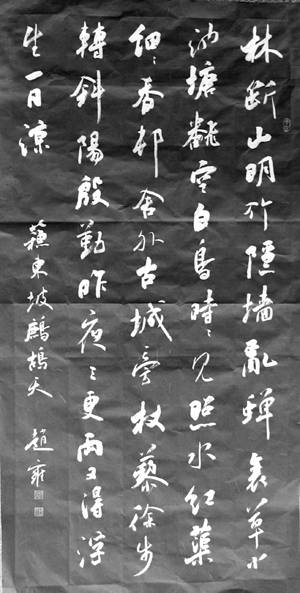 林斷山明竹隱墙亂蟬衰草小
池塘翻空白鳥時々見照水红蕖
細々香邨舍外古城旁杖藜徐步
轉斜陽殷勤昨夜三更雨又得浮
生一日凉
蘇東坡鷓鴣天 趙雍